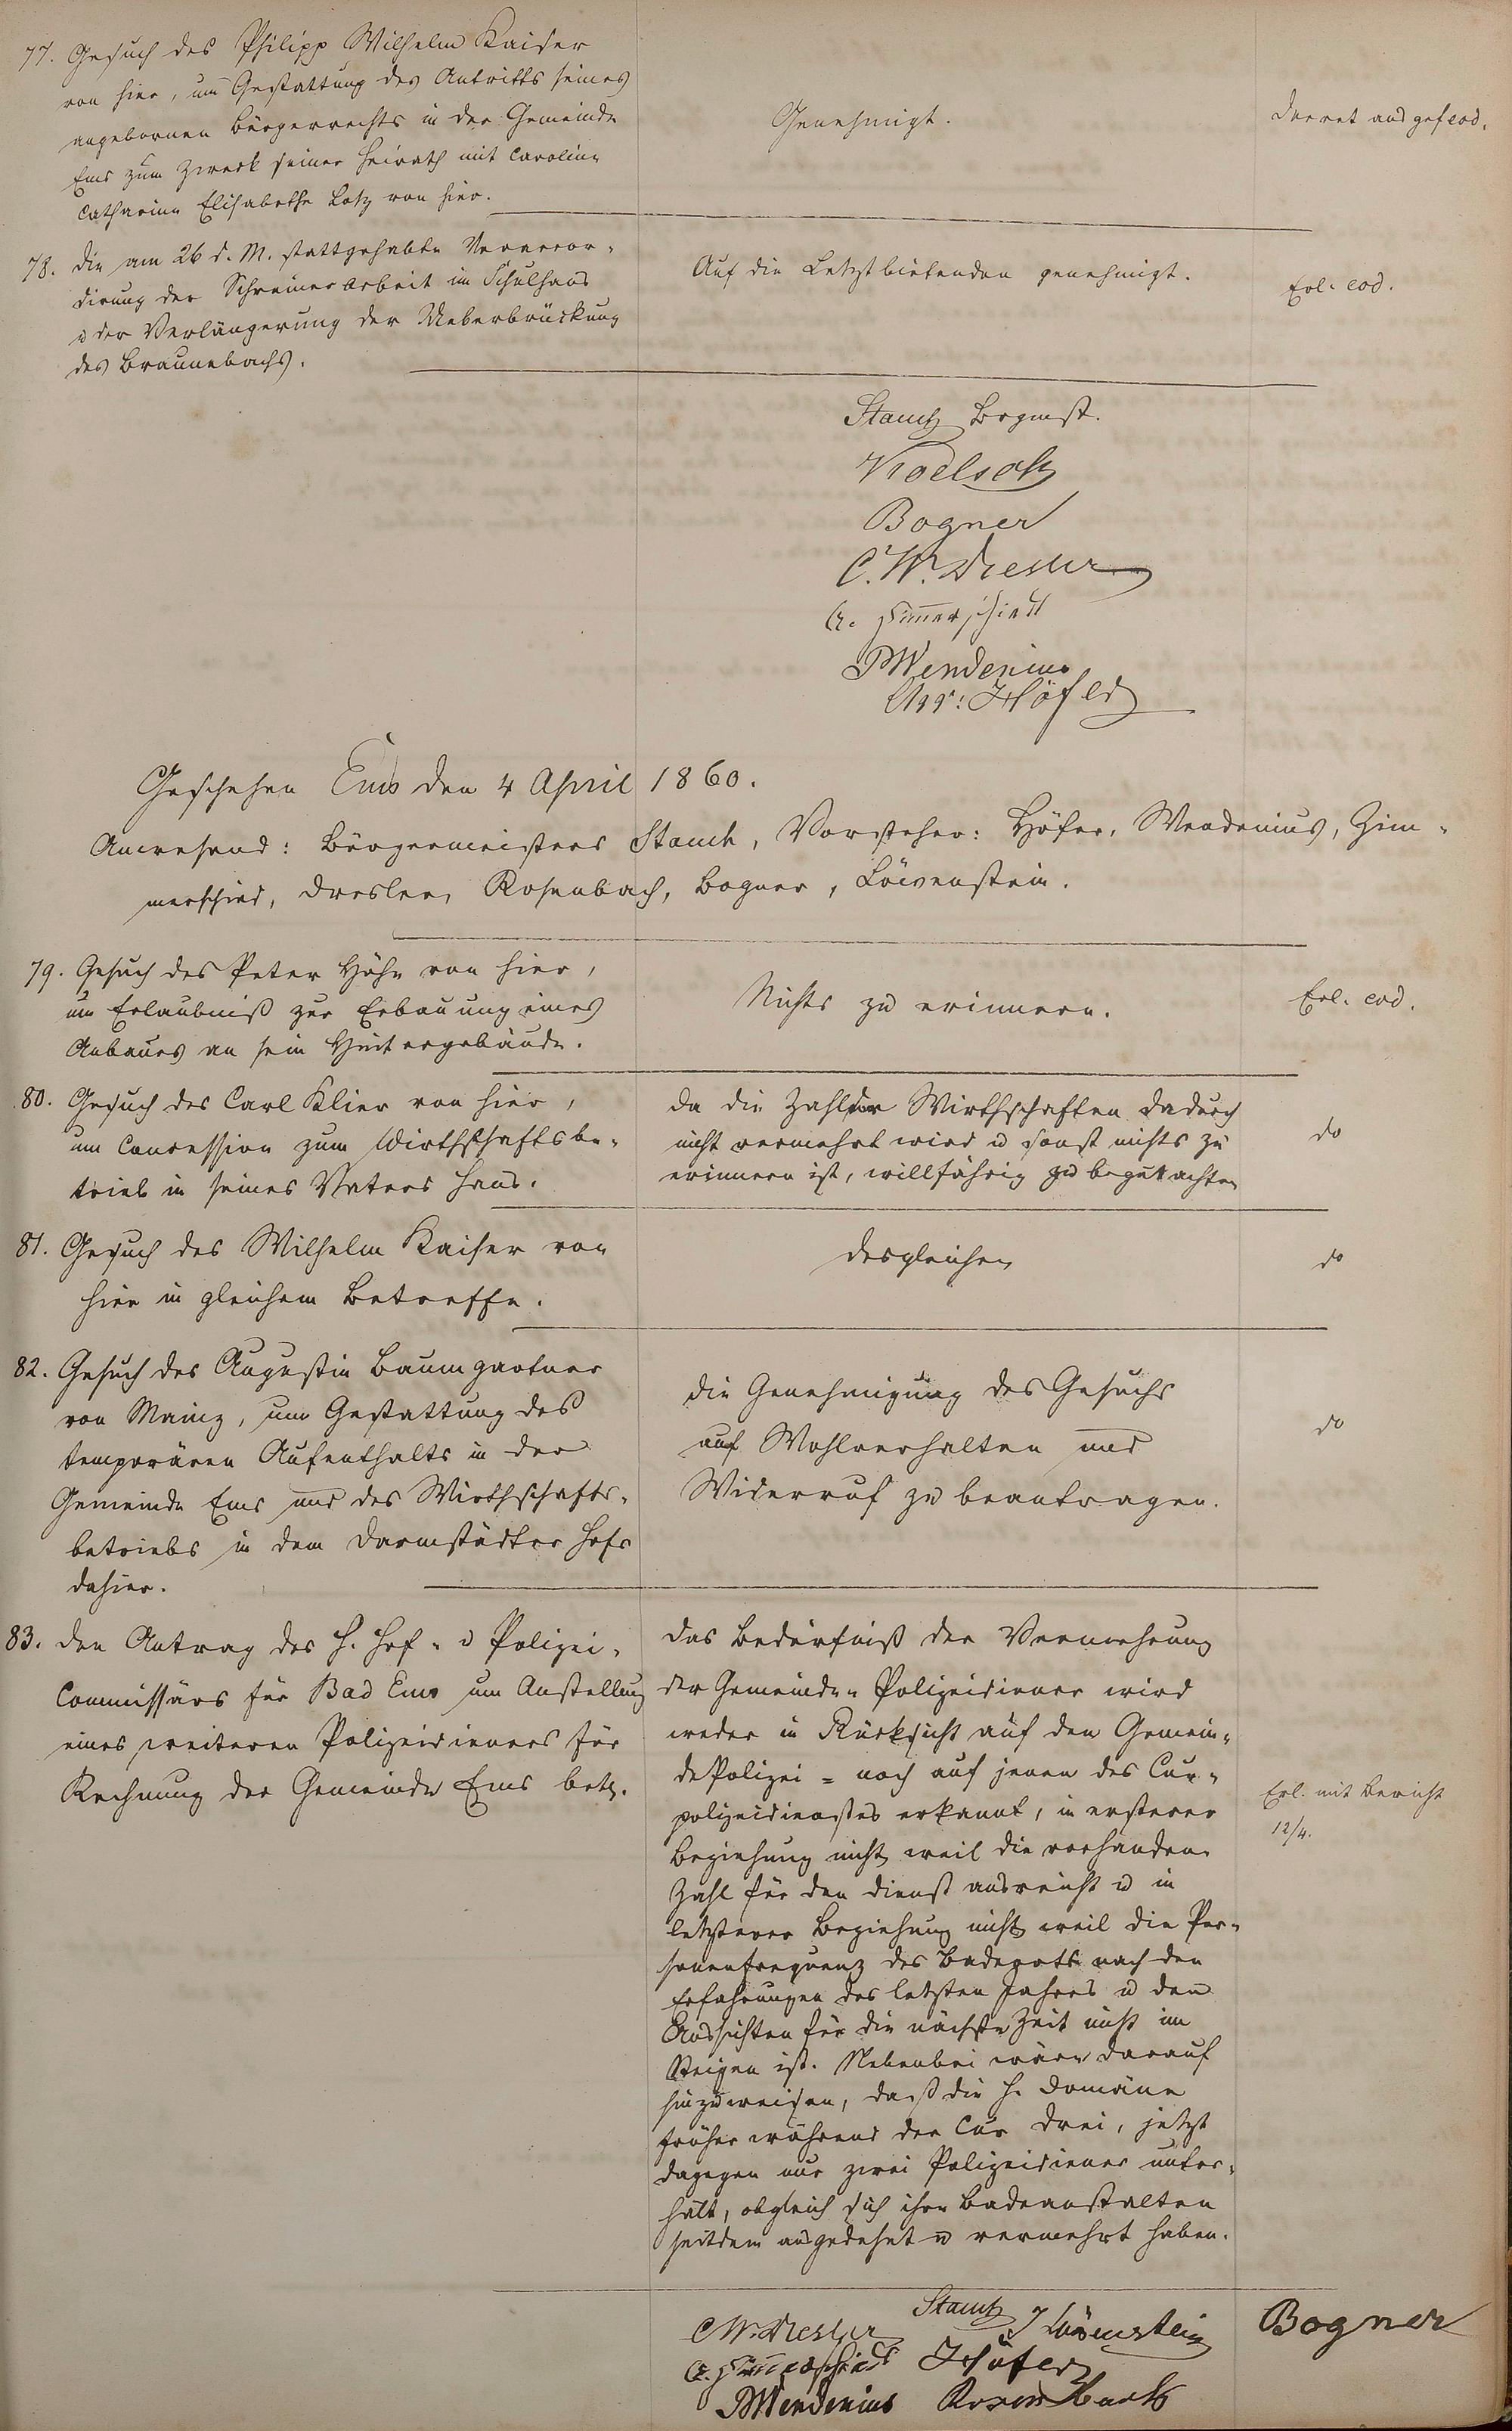 77. Gesuch des Philipp Wilhelm Kaiser
von hier, um Gestattung des Antritts seines
angebornen Bürgerrechts in der Gemeinde
Ems zum Zweck seiner Heirath mit Caroline
Catharine Elisabethe Lotz von hier.
Genehmigt.
Decret ausgef eod.
78. Die am 26 d. M. stattgehabte Veraccor-
dirung der Schreinerarbeit im Schulhaus
u der Verlängerung der Ueberbrückung
des Braunebachs.
Auf die Letztbietenden genehmigt.
Erl. eod.
Stauch Brgmst.
Bogner
C. W. Dresler
Wendenius
Chr: Höfer
Geschehen Ems den 4 April 1860.
Anwesend: Bürgermeister Stauch, Vorsteher: Höfer, Wendenius, Zim-
merschied, Dresler, Rosenbach, Bogner, Löwenstein.
79. Gesuch des Peter Höhn von hier,
um Erlaubniß zur Erbauung eines
Anbaues an sein Hintergebäude.
Nichts zu erinnern.
Erl. eod.
80. Gesuch des Carl Klier von hier,
um Concession zum Wirthschaftsbe-
trieb in seines Vaters Haus.
Da die Zahl der Wirthschaften dadurch
nicht vermehrt wird u sonst nichts zu
erinnern ist, willfährig zu begutachten
do
81. Gesuch des Wilhelm Kaiser von
hier in gleichem Betreffe.
desgleichen
do
82. Gesuch des Augustin Baumgartner
von Mainz, um Gestattung des
temporären Aufenthalts in der
Gemeinde Ems und des Wirthschafts-
betriebs in dem Darmstädter Hofe
dahier.
Die Genehmigung des Gesuchs
auf Wohlverhalten und
Widerruf zu beantragen.
do
83. Den Antrag des H. Hof- u Polizei-
Commissärs für Bad Ems um Anstellung
eines weiteren Polizeidieners für
Rechnung der Gemeinde Ems betr.
Das Bedürfniß der Vermehrung
der Gemeinde-Polizeidiener wird
weder in Rücksicht auf den Gemein-
dePolizei- noch auf jenen des Cur-
polizeidienstes erkannt, in ersterer
Beziehung nicht weil die vorhandene
Zahl für den Dienst ausreicht u in
letzterer Beziehung nicht weil die Per-
sonenfrequenz des Badeorts nach den
Erfahrungen des letzten Jahres u den
Aussichten für die nächste Zeit nicht im
Steigen ist. Nebenbei wäre darauf
hinzuweisen, daß die H. Domäne
früher während der Cur drei, jetzt
dagegen nur zwei Polizeidiener unter-
hält, obgleich sich ihre Badeanstalten
seitdem ausgedehnt u vermehrt haben.
Erl. mit Bericht
12/4.
Stauch
C W. Dresler
J Löwenstein
Bogner
C. Zimmerschied
Höfer
Wendenius
Rosenbach